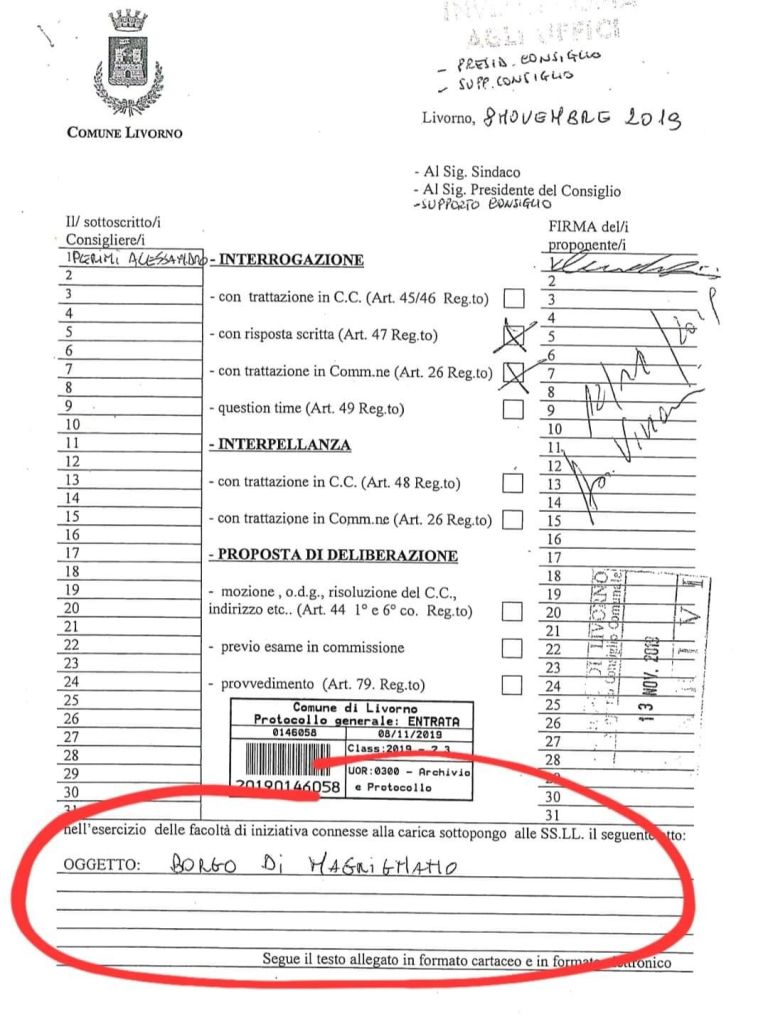 AGLI UFFICI
- PRESID. CONSIGLIO
- SUPP. CONSIGLIO
COMUNE LIVORNO
Livorno, 8 NOVEMBRE 2019
- Al Sig. Sindaco
- Al Sig. Presidente del Consiglio
- SUPPORTO CONSIGLIO
Il/ sottoscritto/i
Consigliere/i
FIRMA del/i
proponente/i
1 PERINI ALESSANDRO
2
3
4
5
6
7
8
9
10
11
12
13
14
15
16
17
18
19
20
21
22
23
24
25
26
27
28
29
30
31
- INTERROGAZIONE
- con trattazione in C.C. (Art. 45/46 Reg.to)
- con risposta scritta (Art. 47 Reg.to)
- con trattazione in Comm.ne (Art. 26 Reg.to)
- question time (Art. 49 Reg.to)
- INTERPELLANZA
- con trattazione in C.C. (Art. 48 Reg.to)
- con trattazione in Comm.ne (Art. 26 Reg.to)
- PROPOSTA DI DELIBERAZIONE
- mozione , o.d.g., risoluzione del C.C.,
indirizzo etc.. (Art. 44 1° e 6° co. Reg.to)
- previo esame in commissione
- provvedimento (Art. 79. Reg.to)
Comune di Livorno
Protocollo generale: ENTRATA
0146058
08/11/2019
Class:2019 - 2.3
UOR:0300 - Archivio
e Protocollo
20190146058
2
3
4
5
6
7
8
9
10
11
12
13
14
15
16
17
18
19
20
21
22
23
24
25
26
27
28
29
30
31
DI LIVORNO
Consiglio Comunale
13 NOV. 2019
nell'esercizio delle facoltà di iniziativa connesse alla carica sottopongo alle SS.LL. il seguente atto:
OGGETTO: BORGO DI MAGRIGNANO
Segue il testo allegato in formato cartaceo e in formato elettronico